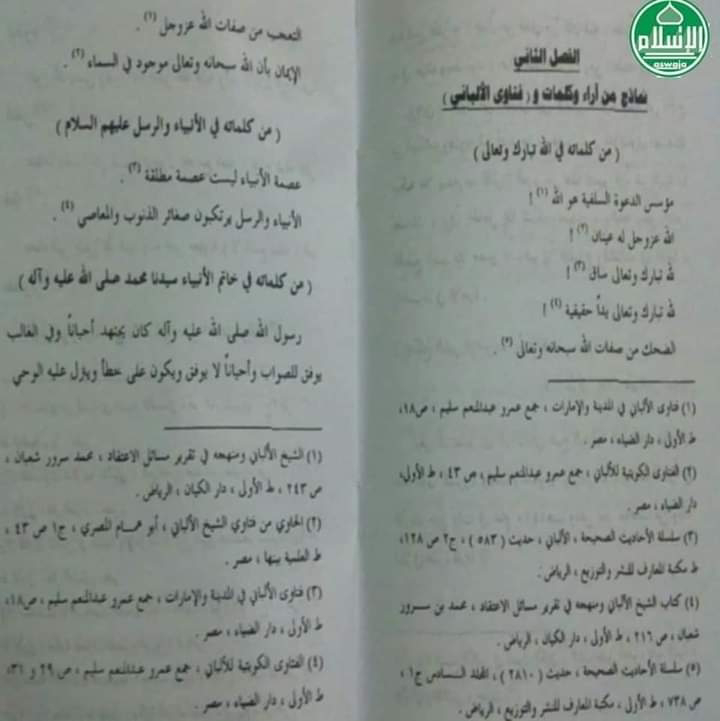 الإسلام
aswaja
الفصل الثاني
نماذج من آراء وكلمات و ( فتاوى الألباني )
( من كلماته في الله تبارك وتعالى )
مؤسس الدعوة السلفية هو الله (١) !
الله عزوجل له عينان (٢) !
لله تبارك وتعالى ساق (٣) !
لله تبارك وتعالى يداً حقيقية (٤) !
الضحك من صفات الله سبحانه وتعالى (٥) .
(١) فتاوى الألباني في المدينة والإمارات ، جمع عمرو عبدالمنعم سليم ، ص١٨،
ط الأولى ، دار الضياء ، مصر .
(٢) الفتاوى الكويتية للألباني ، جمع عمرو عبدالمنعم سليم ، ص ٤٣ ، ط الأولى،
دار الضياء ، مصر .
(٣) سلسلة الأحاديث الصحيحة ، الألباني ، حديث ( ٥٨٣ ) ، ج٢ ص ١٢٨،
ط مكتبة المعارف للنشر والتوزيع ، الرياض .
(٤) كتاب الشيخ الألباني ومنهجه في تقرير مسائل الاعتقاد ، محمد بن سرور
شعبان ، ص ٢١٦ ، ط الأولى ، دار الكيان ، الرياض .
(٥) سلسلة الأحاديث الصحيحة ، حديث ( ٢٨١٠ ) ، المجلد السادس ج١ ،
ص ٧٣٨ ، ط الأولى ، مكتبة المعارف للنشر والتوزيع ، الرياض .
التعجب من صفات الله عزوجل (١) .
الإيمان بأن الله سبحانه وتعالى موجود في السماء (٢) .
( من كلماته في الأنبياء والرسل عليهم السلام )
عصمة الأنبياء ليست عصمة مطلقة (٣) .
الأنبياء والرسل يرتكبون صغائر الذنوب والمعاصي (٤) .
( من كلماته في خاتم الأنبياء سيدنا محمد صلى الله عليه وآله )
رسول الله صلى الله عليه وآله كان يجتهد أحياناً وفي الغالب
يوفق للصواب وأحياناً لا يوفق ويكون على خطأ وينزل عليه الوحي
(١) الشيخ الألباني ومنهجه في تقرير مسائل الاعتقاد ، محمد سرور شعبان ،
ص ٢٤٣ ، ط الأولى ، دار الكيان ، الرياض .
(٢) الحاوي من فتاوي الشيخ الألباني ، أبو همام المصري ، ج١ ص ٤٣ ،
ط العلمية ببنها ، مصر .
(٣) فتاوى الألباني في المدينة والإمارات ، جمع عمرو عبدالمنعم سليم ، ص١٨،
ط الأولى ، دار الضياء ، مصر .
(٤) الفتاوى الكويتية للألباني ، جمع عمرو عبدالمنعم سليم ، ص ٢٩ و ٣١،
ط الأولى ، دار الضياء ، مصر .